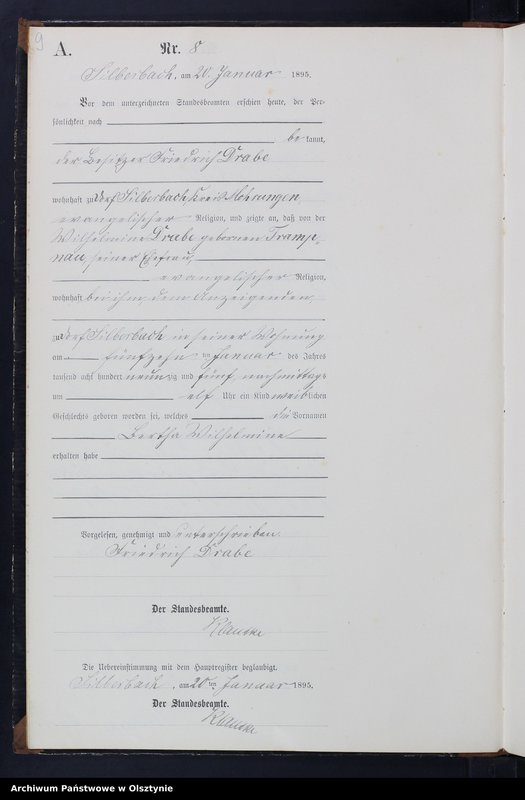 9
A.
Nr. 8
Silberbach, am 20. Januar 1895.
Vor dem unterzeichneten Standesbeamten erschien heute, der Per-
sönlichkeit nach
be kannt,
der Besitzer Friedrich Drabe
wohnhaft zu Dorf Silberbach Kreis Mohrungen
evangelischer Religion, und zeigte an, daß von der
Wilhelmine Drabe gebornen Tramp-
nau, seiner Ehefrau,
evangelischer Religion,
wohnhaft bei ihm dem Anzeigenden,
zu Dorf Silberbach in seiner Wohnung
am fünfzehn ten Januar des Jahres
tausend acht hundert neunzig und fünf nachmittags
um elf Uhr ein Kind weiblichen
Geschlechts geboren worden sei, welches die Vornamen
Bertha Wilhelmine
erhalten habe
Vorgelesen, genehmigt und unterschrieben
Friedrich Drabe
Der Standesbeamte.
Die Uebereinstimmung mit dem Hauptregister beglaubigt.
Silberbach, am 20ten Januar 1895.
Der Standesbeamte.
Archiwum Państwowe w Olsztynie